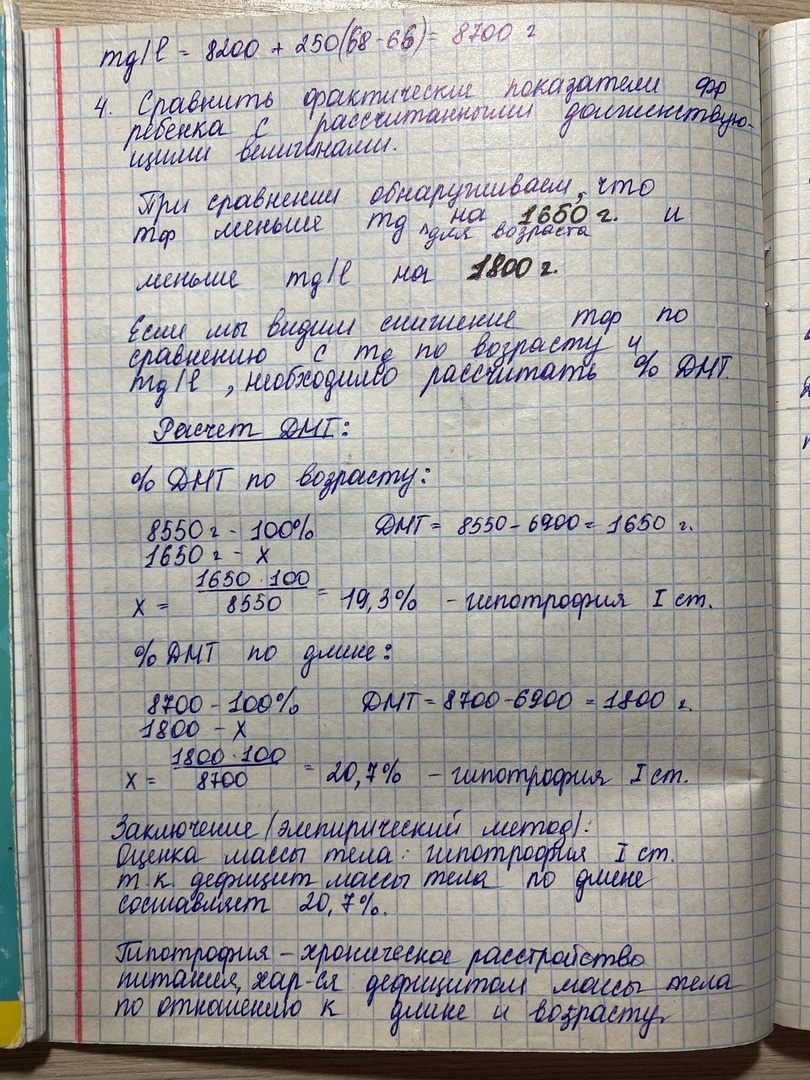 mд/l = 8200 + 250(68-66)= 8700 г
4. Сравнить фактические показатели ФР
ребенка с рассчитанными долженствую-
щими величинами.
При сравнении обнаруживаем, что
mф меньше mд для возраста на 1650 г. и
меньше mд/l на 1800 г.
Если мы видим снижение mф по
сравнению с mд по возрасту и
mд/l, необходимо рассчитать % ДМТ
Расчет ДМТ:
% ДМТ по возрасту:
8550 г - 100% ДМТ = 8550 - 6900 = 1650 г.
1650 г - x
x = 1650 · 100 / 8550 = 19,3% - гипотрофия I ст.
% ДМТ по длине:
8700 - 100% ДМТ = 8700 - 6900 = 1800 г.
1800 - x
x = 1800 · 100 / 8700 = 20,7% - гипотрофия I ст.
Заключение (эмпирический метод):
Оценка массы тела: гипотрофия I ст.
т.к. дефицит массы тела по длине
составляет 20,7%.
Гипотрофия - хроническое расстройство
питания, хар-ся дефицитом массы тела
по отношению к длине и возрасту.